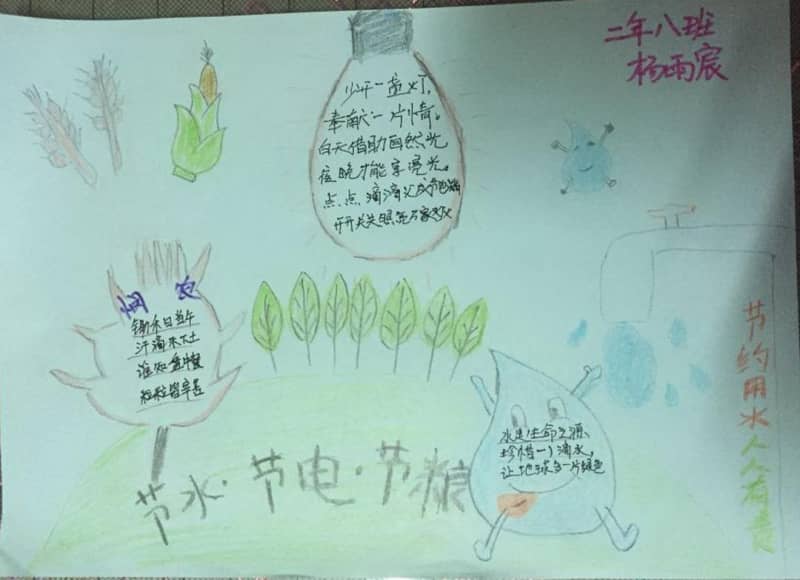 二年八班
杨雨宸
少开一盏灯,
奉献一片情。
白天借助自然光
夜晚才能享亮光。
点点滴滴父成节电篇
开开关关照亮万家灯火
悯农
锄禾日当午
汗滴禾下土
谁知盘中餐
粒粒皆辛苦
水是生命之源、
珍惜一滴水,
让地球多一片绿色
节约用水人人有责
节水·节电·节粮